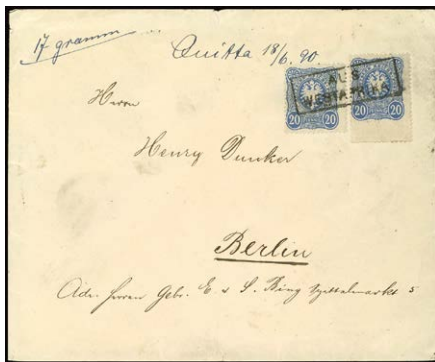 17 gramm
Quitta 18/6. 90.
AUS
WESTAFRIKA
20 20 20 20
Herrn
Henry Dunker
Berlin
Adr. Herren Gebr. E & S. Bing Spittelmarkt 5